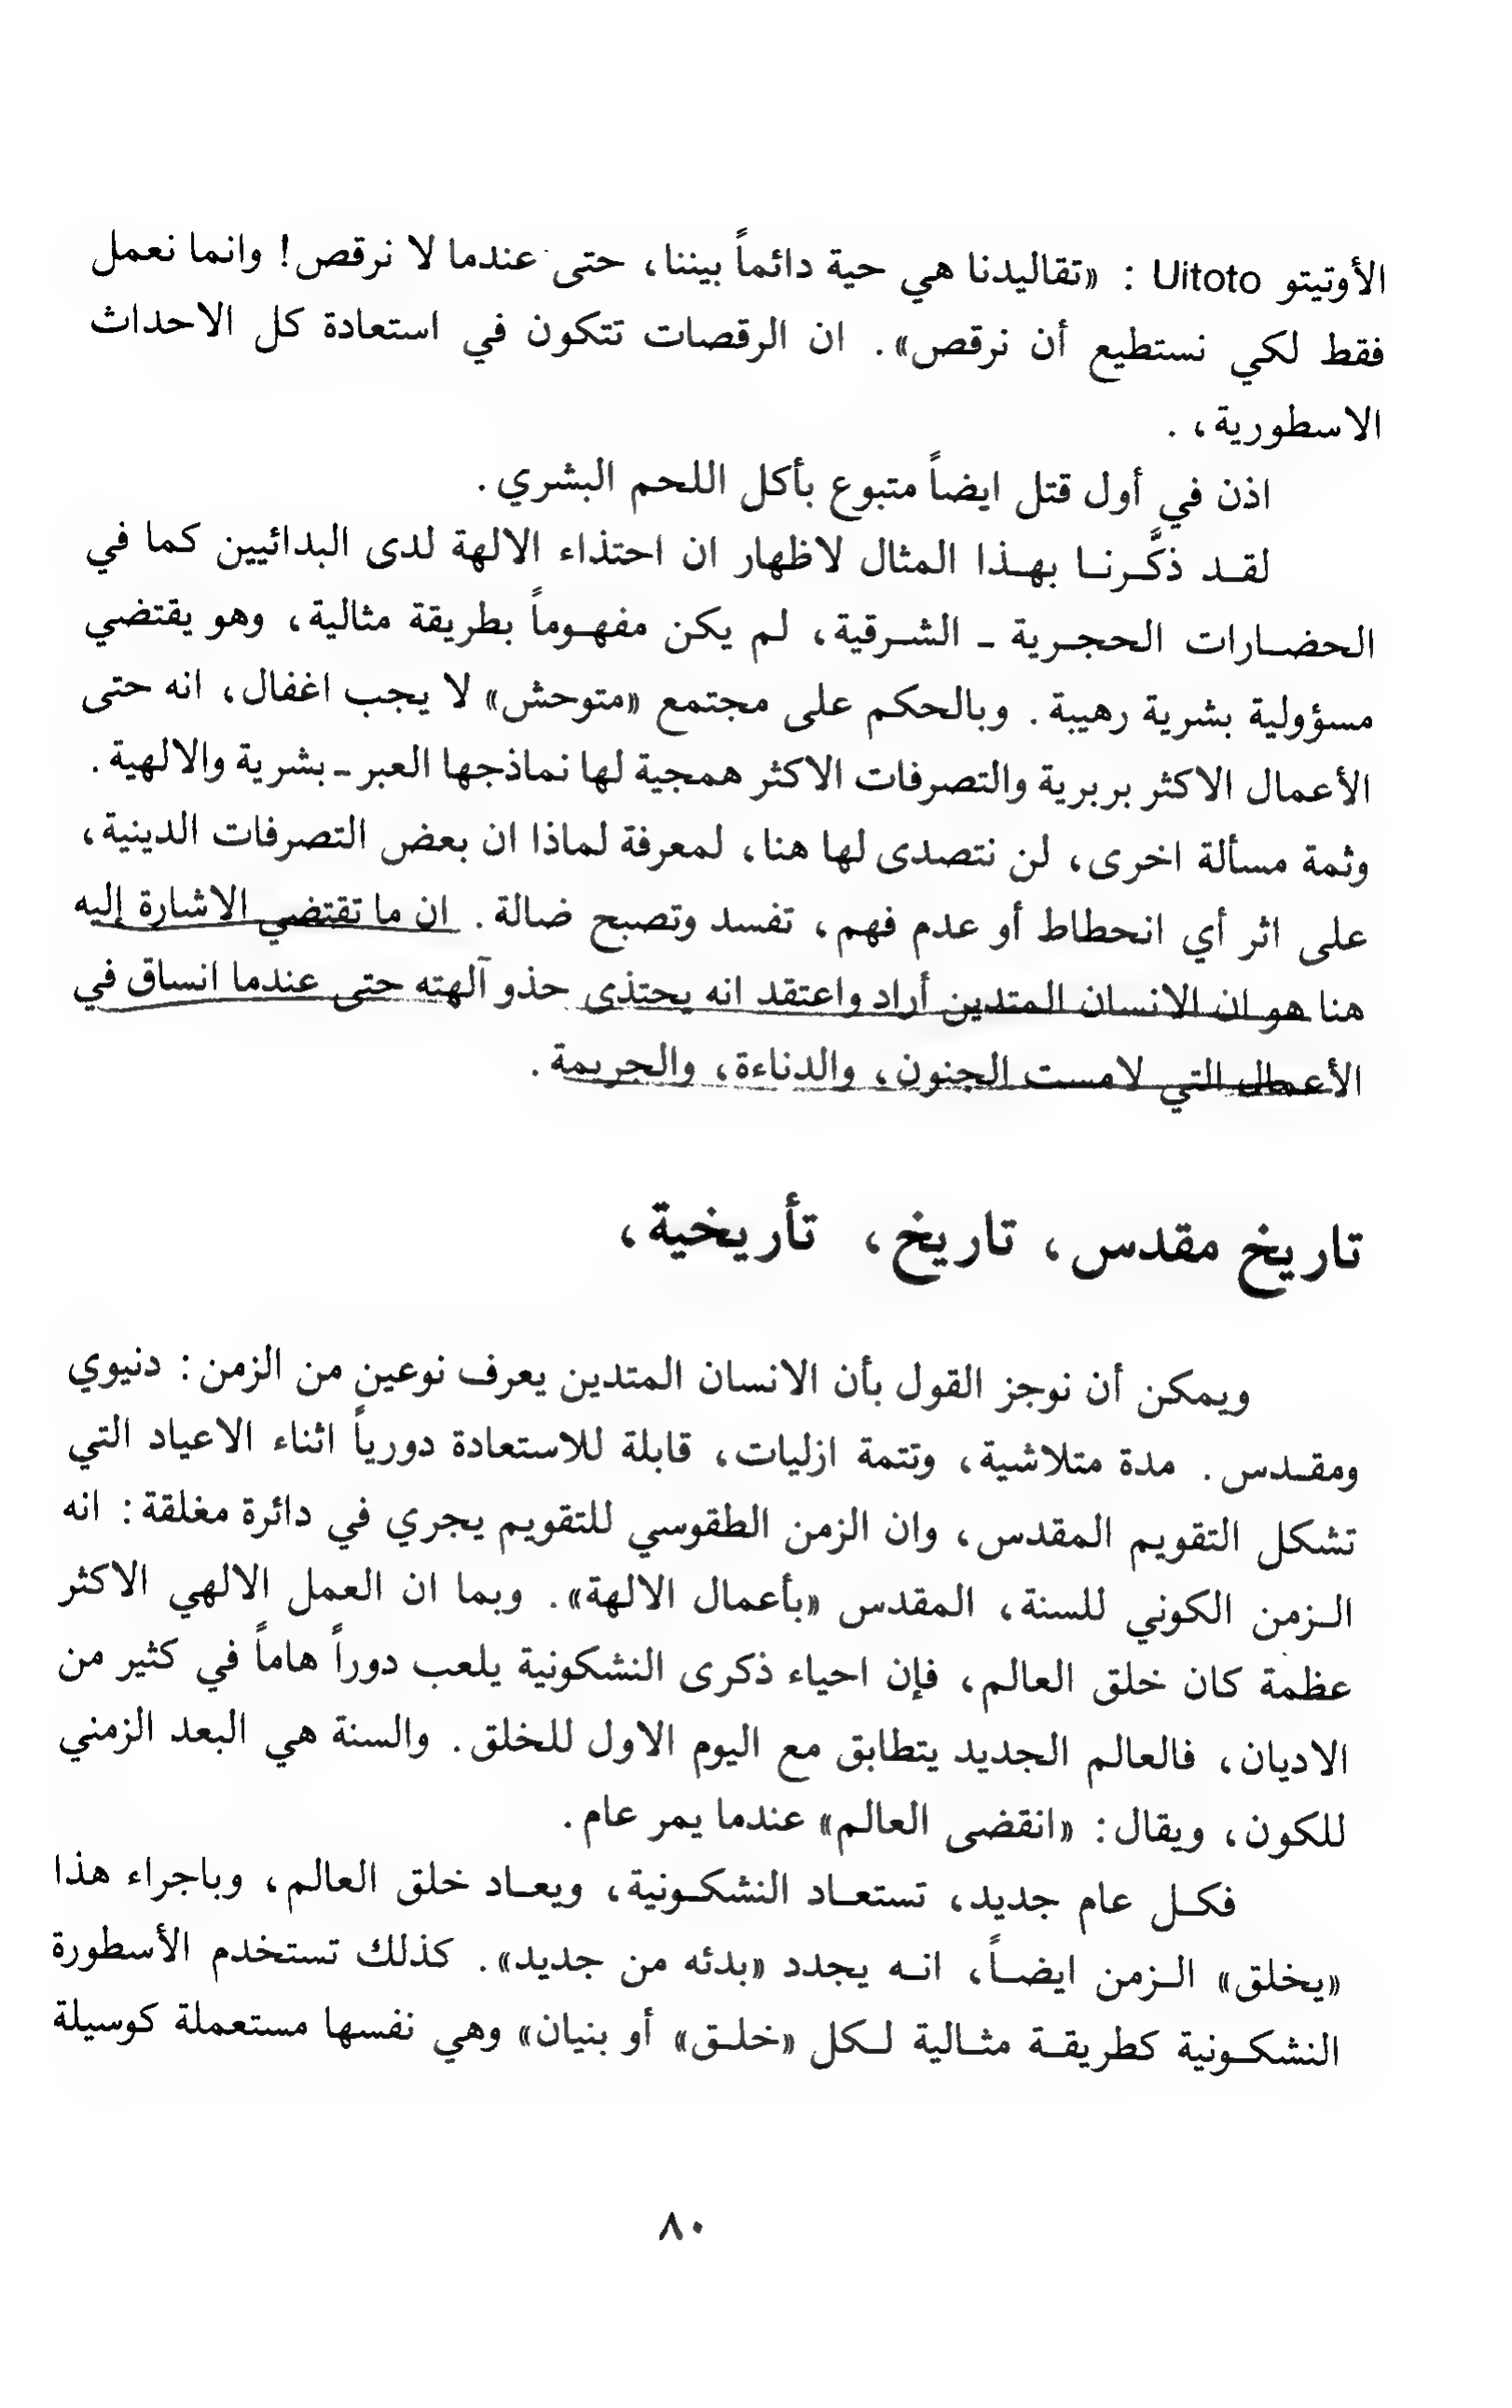 الأوتيتو Uitoto : «تقاليدنا هي حية دائماً بيننا، حتى عندما لا نرقص! وانما نعمل
فقط لكي نستطيع أن نرقص». ان الرقصات تتكون في استعادة كل الاحداث
الاسطورية، .
اذن في أول قتل ايضاً متبوع بأكل اللحم البشري.
لقد ذكَّرنا بهذا المثال لاظهار ان احتذاء الالهة لدى البدائيين كما في
الحضارات الحجرية - الشرقية، لم يكن مفهوماً بطريقة مثالية، وهو يقتضي
مسؤولية بشرية رهيبة. وبالحكم على مجتمع «متوحش» لا يجب اغفال، انه حتى
الأعمال الاكثر بربرية والتصرفات الاكثر همجية لها نماذجها العبر - بشرية والالهية.
وثمة مسألة اخرى، لن نتصدى لها هنا، لمعرفة لماذا ان بعض التصرفات الدينية،
على اثر أي انحطاط أو عدم فهم، تفسد وتصبح ضالة. ان ما تقتضي الاشارة إليه
هنا هو ان الانسان المتدين أراد واعتقد انه يحتذى حذو آلهته حتى عندما انساق في
الأعمال التي لامست الجنون، والدناءة، والجريمة.
تاريخ مقدس، تاريخ، تأريخية،
ويمكن أن نوجز القول بأن الانسان المتدين يعرف نوعين من الزمن: دنيوي
ومقدس. مدة متلاشية، وتتمة ازليات، قابلة للاستعادة دورياً اثناء الاعياد التي
تشكل التقويم المقدس، وان الزمن الطقوسي للتقويم يجري في دائرة مغلقة: انه
الزمن الكوني للسنة، المقدس «بأعمال الالهة». وبما ان العمل الالهي الاكثر
عظمة كان خلق العالم، فإن احياء ذكرى النشكونية يلعب دوراً هاماً في كثير من
الاديان، فالعالم الجديد يتطابق مع اليوم الاول للخلق. والسنة هي البعد الزمني
للكون، ويقال: «انقضى العالم» عندما يمر عام.
فكل عام جديد، تستعاد النشكونية، ويعاد خلق العالم، وباجراء هذا
«يخلق» الزمن ايضاً، انه يجدد «بدئه من جديد». كذلك تستخدم الأسطورة
النشكونية كطريقة مثالية لكل «خلق» أو بنيان» وهي نفسها مستعملة كوسيلة
٨٠